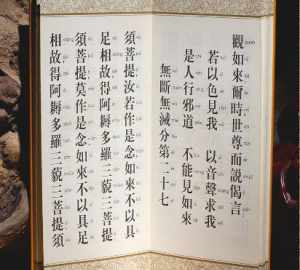 觀如來爾時世尊而說偈言
若以色見我 以音聲求我
是人行邪道 不能見如來
無斷無滅分第二十七
須菩提汝若作是念如來不以具
足相故得阿耨多羅三藐三菩提
須菩提莫作是念如來不以具足
相故得阿耨多羅三藐三菩提須